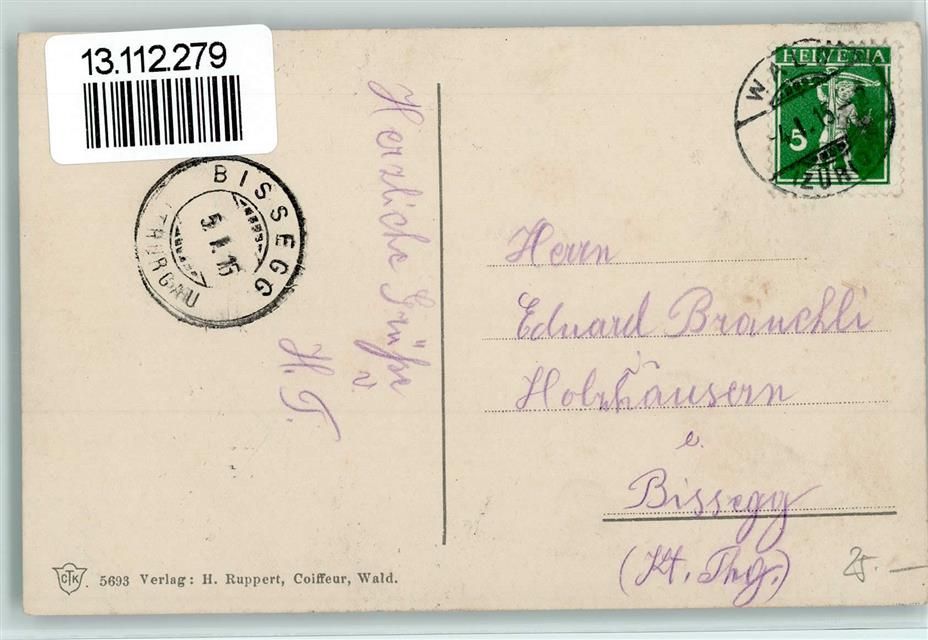 13.112.279
BISSEGG
5.I.15
(THURGAU)
Herzliche Grüße
v.
H. T.
HELVETIA
5
WALD
ZÜRICH
Herrn
Eduard Bräuchli
Holzhäusern
b.
Bissegg
(Kt. Thg.)
25.—
CTK 5693 Verlag: H. Ruppert, Coiffeur, Wald.